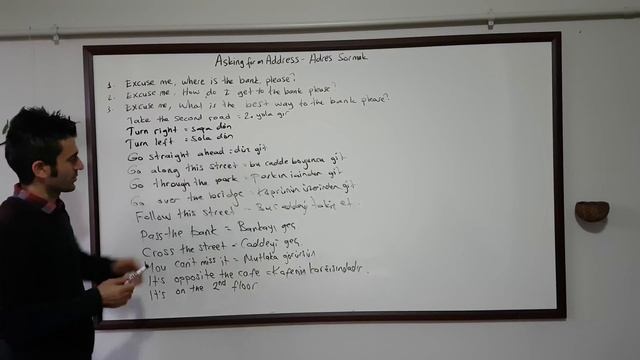 Asking for an Address - Adres Sormak
1. Excuse me, where is the bank please?
2. Excuse me. How do I get to the bank please?
3. Excuse me, What is the best way to the bank please?
Take the second road = 2. yola gir
Turn right = sağa dön
Turn left = sola dön
Go straight ahead = düz git
Go along this street = bu cadde boyunca git
Go through the park = parkın içinden git
Go over the bridge = Köprünün üzerinden git
Follow this street = Bu caddeyi takip et.
Pass the bank = Bankayı geç
Cross the street = Caddeyi geç
You can't miss it = Mutlaka görürsün
It's opposite the cafe = Kafenin karşısındadır.
It's on the 2nd floor